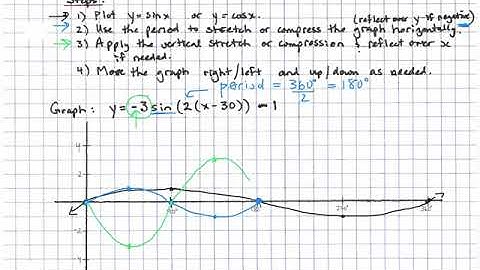 Steps:
1) Plot y = sin x or y = cos x.
(reflect over y if negative)
2) Use the period to stretch or compress the graph horizontally.
3) Apply the vertical stretch or compression & reflect over x
if needed.
4) Move the graph right/left and up/down as needed.
period = 360°/2 = 180°
Graph: y = -3 sin (2(x-30)) - 1
4
2
90°
270°
360°
-2
-4